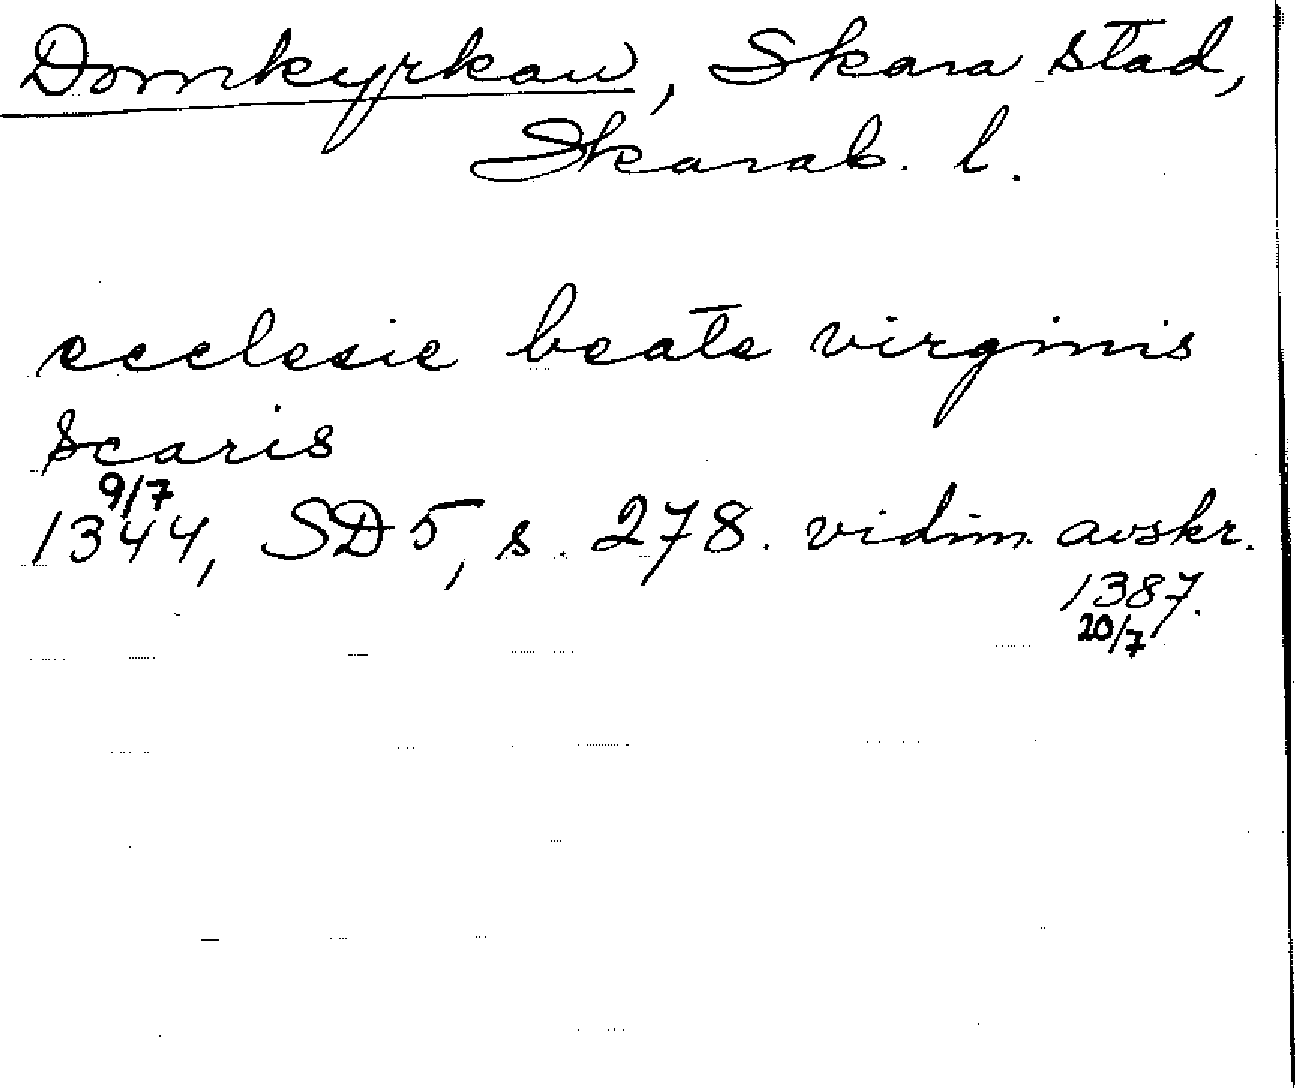 Domkyrkan, Skara stad,
Skarab. l.
ecclesie beate virginis
scaris
9/7
1344, SD 5, s. 278. vidim. avskr.
1387.
20/7